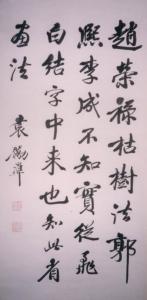 趙榮祿枯樹法郭
熙李成不知實從飛
白結字中來也知此省
畫法
袁勵準